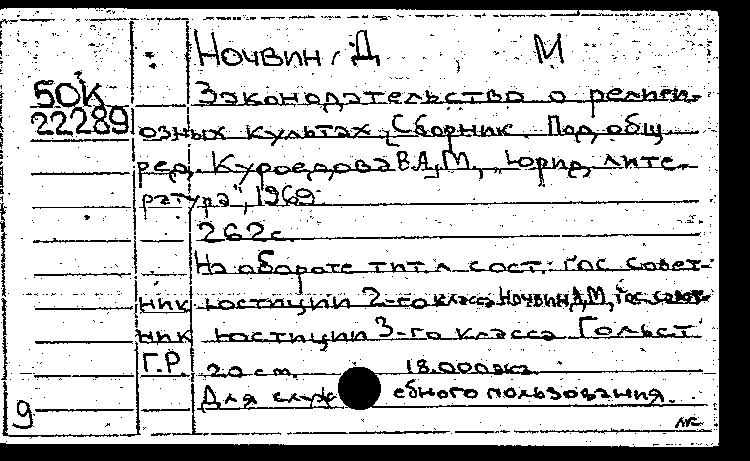 Ночвин, Д М
50К Законодательство о религи-
22289 озных культах, Сборник. Под общ
ред. Куроедова В.А, М, "Юрид, лите-
ратура", 1969.
262с.
На обороте тит. л сост.: Гос совет-
ник юстиции 2-го класса Ночвин Д,М, Гос совет-
ник юстиции 3-го класса Гольст
Г.Р. 20 ст. 18.000экз.
Для служебного пользования.
9